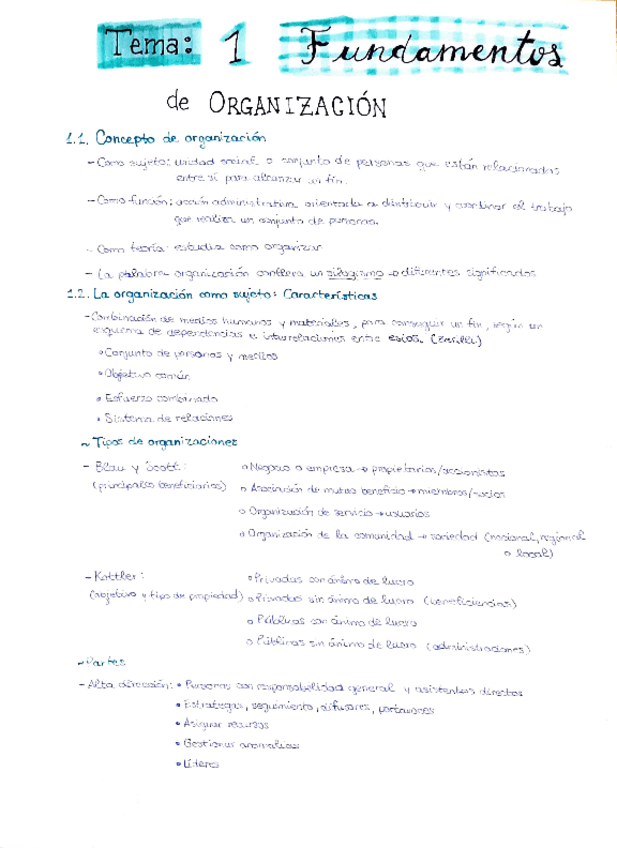 Tema: 1 Fundamentos
de ORGANIZACIÓN
1.1. Concepto de organización
- Como sujeto: unidad social o conjunto de personas que están relacionadas
entre sí para alcanzar un fin.
- Como función: acción administrativa orientada a distribuir y coordinar el trabajo
que realiza un conjunto de personas.
- Como teoría: estudia como organizar
- La palabra organización conlleva un silogismo → diferentes significados
1.2. La organización como sujeto: Características
- Combinación de medios humanos y materiales, para conseguir un fin, según un
esquema de dependencias e interrelaciones entre ellos.
• Conjunto de personas y medios
• Objetivo común
• Esfuerzo combinado
• Sistema de relaciones
~ Tipos de organizaciones
- Blau y Scott: o Negocio o empresa → propietarios/accionistas
(principales beneficiarios) o Asociación de mutuo beneficio → miembros/socios
o Organización de servicio → usuarios
o Organización de la comunidad → sociedad (nacional, regional
o local)
- Kottler: o Privadas con ánimo de lucro
(objetivo y tipo de propiedad) o Privadas sin ánimo de lucro (beneficiencias)
o Públicas con ánimo de lucro
o Públicas sin ánimo de lucro (administraciones)
~ Partes
- Alta dirección: • Personas con responsabilidad general y asistentes directos
• Estrategas, seguimiento, difusores, portavoces
• Asignar recursos
• Gestionar anomalías
• Líderes